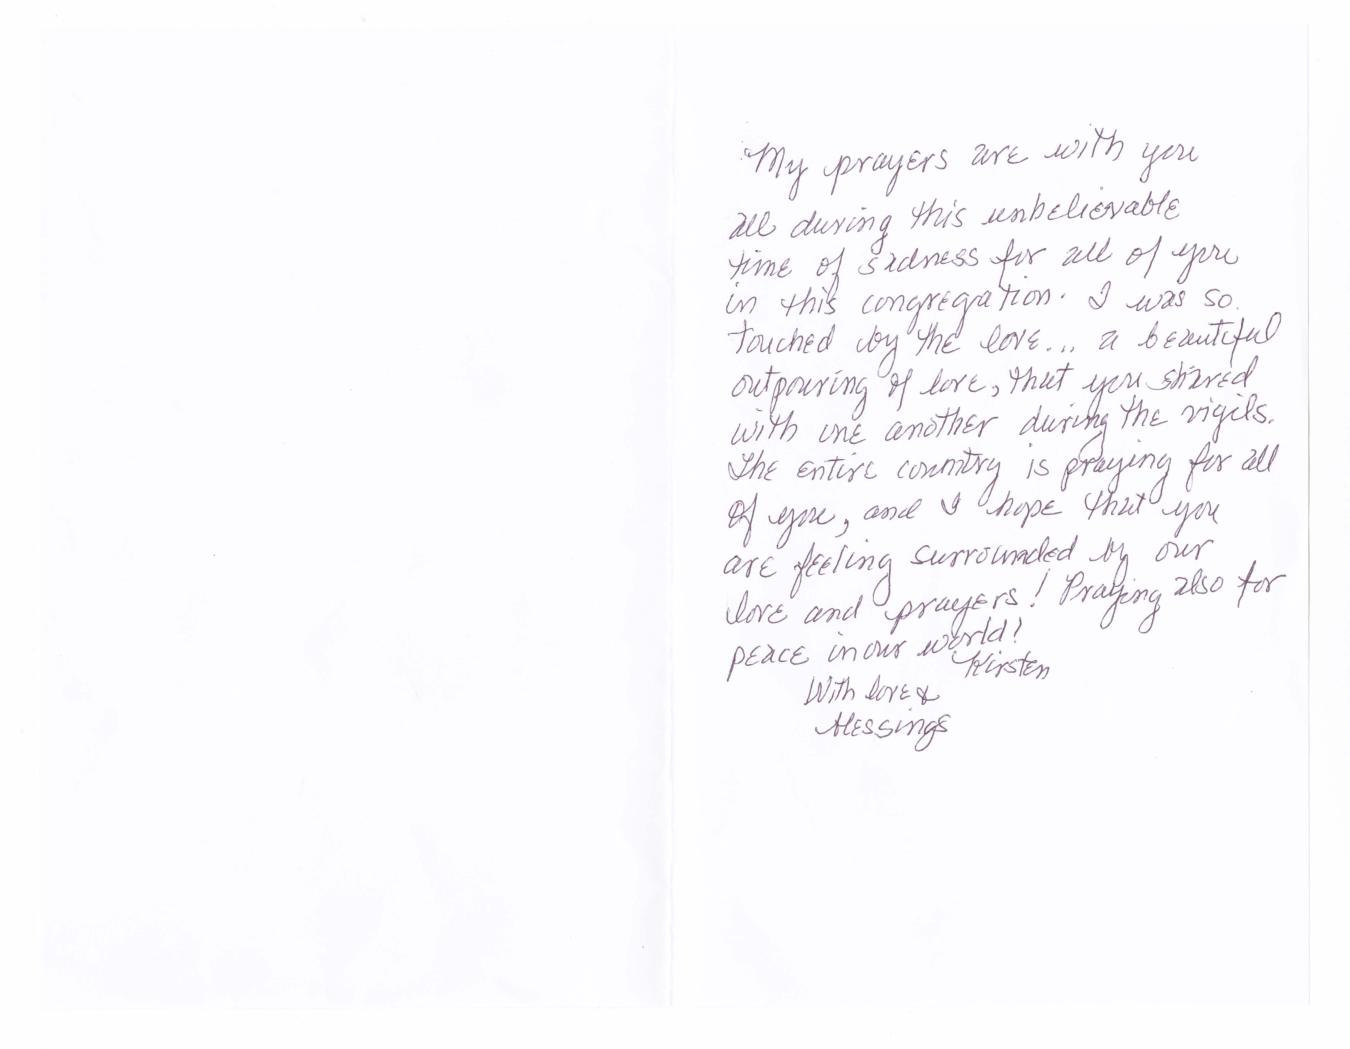 My prayers are with you
all during this unbelievable
time of sadness for all of you
in this congregation. I was so
touched by the love... a beautiful
outpouring of love, that you shared
with one another during the vigils.
The entire country is praying for all
of you, and I hope that you
are feeling surrounded by our
love and prayers! Praying also for
peace in our world!
Kirsten
With love &
blessings